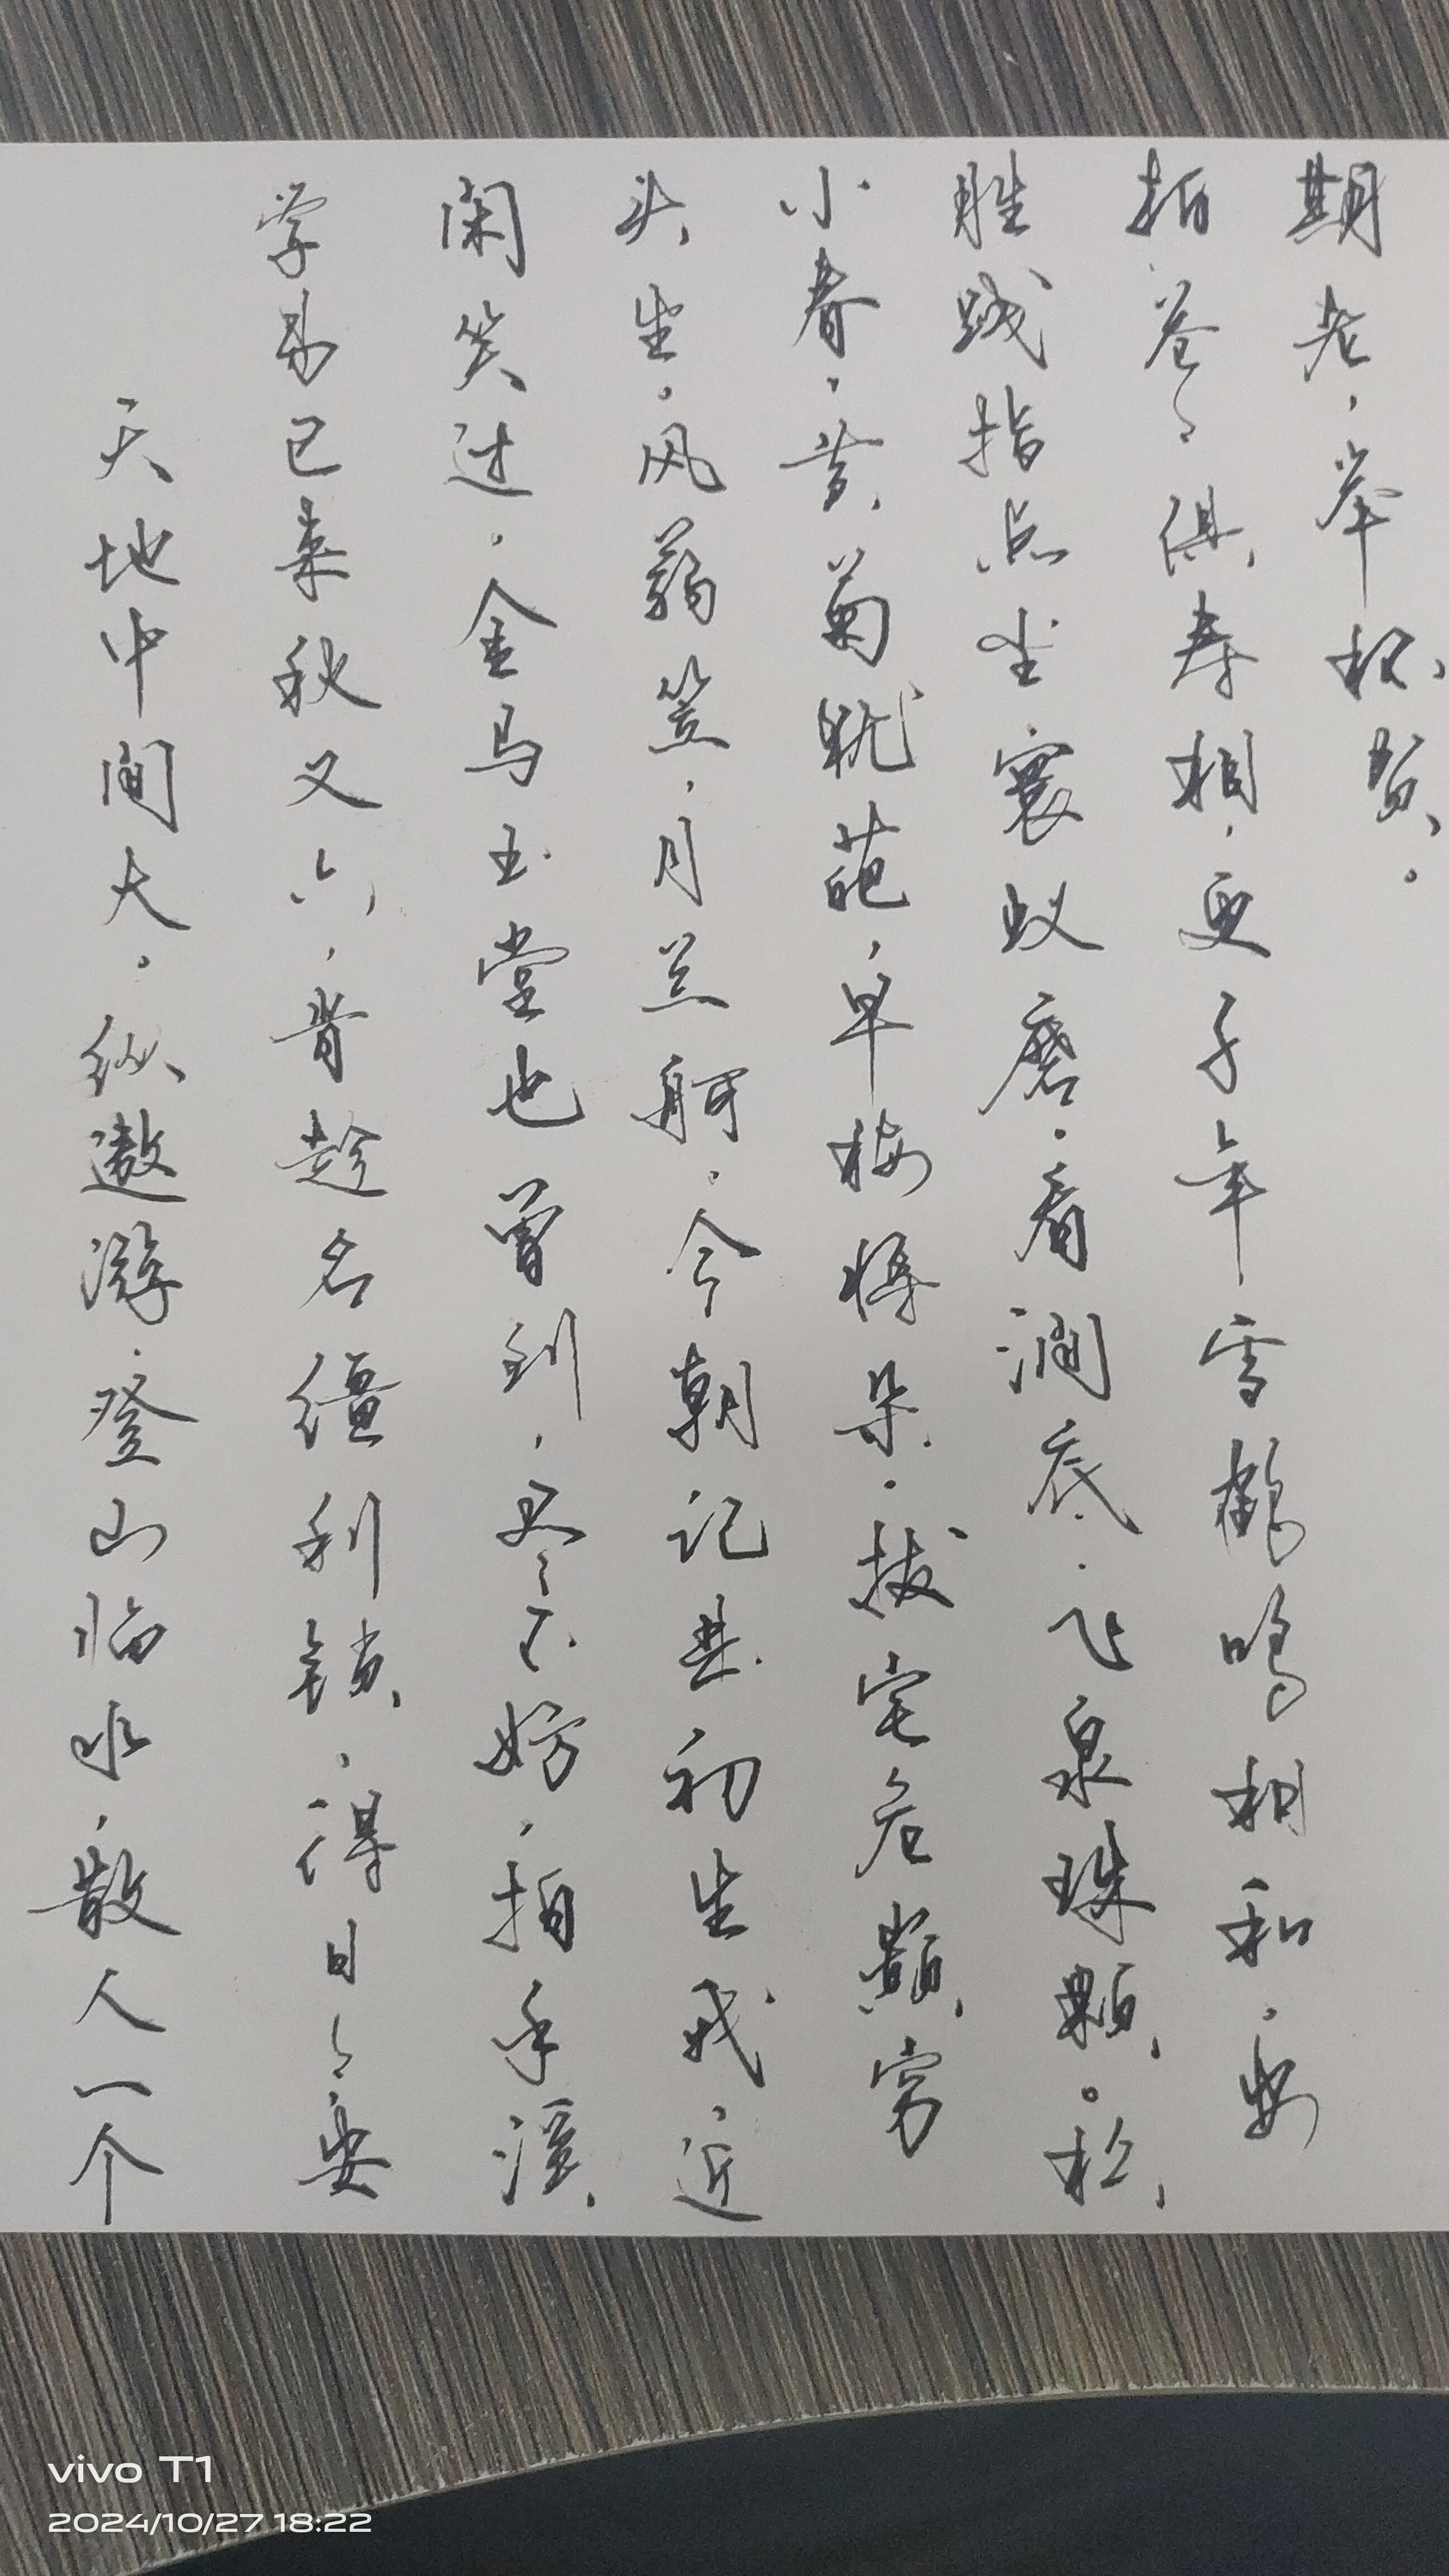 天地中间大。纵遨游、登山临水，散人一个
学易已来秋又六，肯趁名缰利锁，得日々安
闲笑过。金马玉堂也曾到，尽不妨，拍手溪
头坐。风蒻笠，月兰舸。今朝记其初生我，近
小春，黄菊犹葩，早梅将朵。拔宅危巅穷
胜践指点尘寰蚁磨。看涧底、飞泉珠颗。松
柏苍々俱寿相，更千年雪鹤鸣相和，要
期老，举杯贺。
vivo T1
2024/10/27 18:22